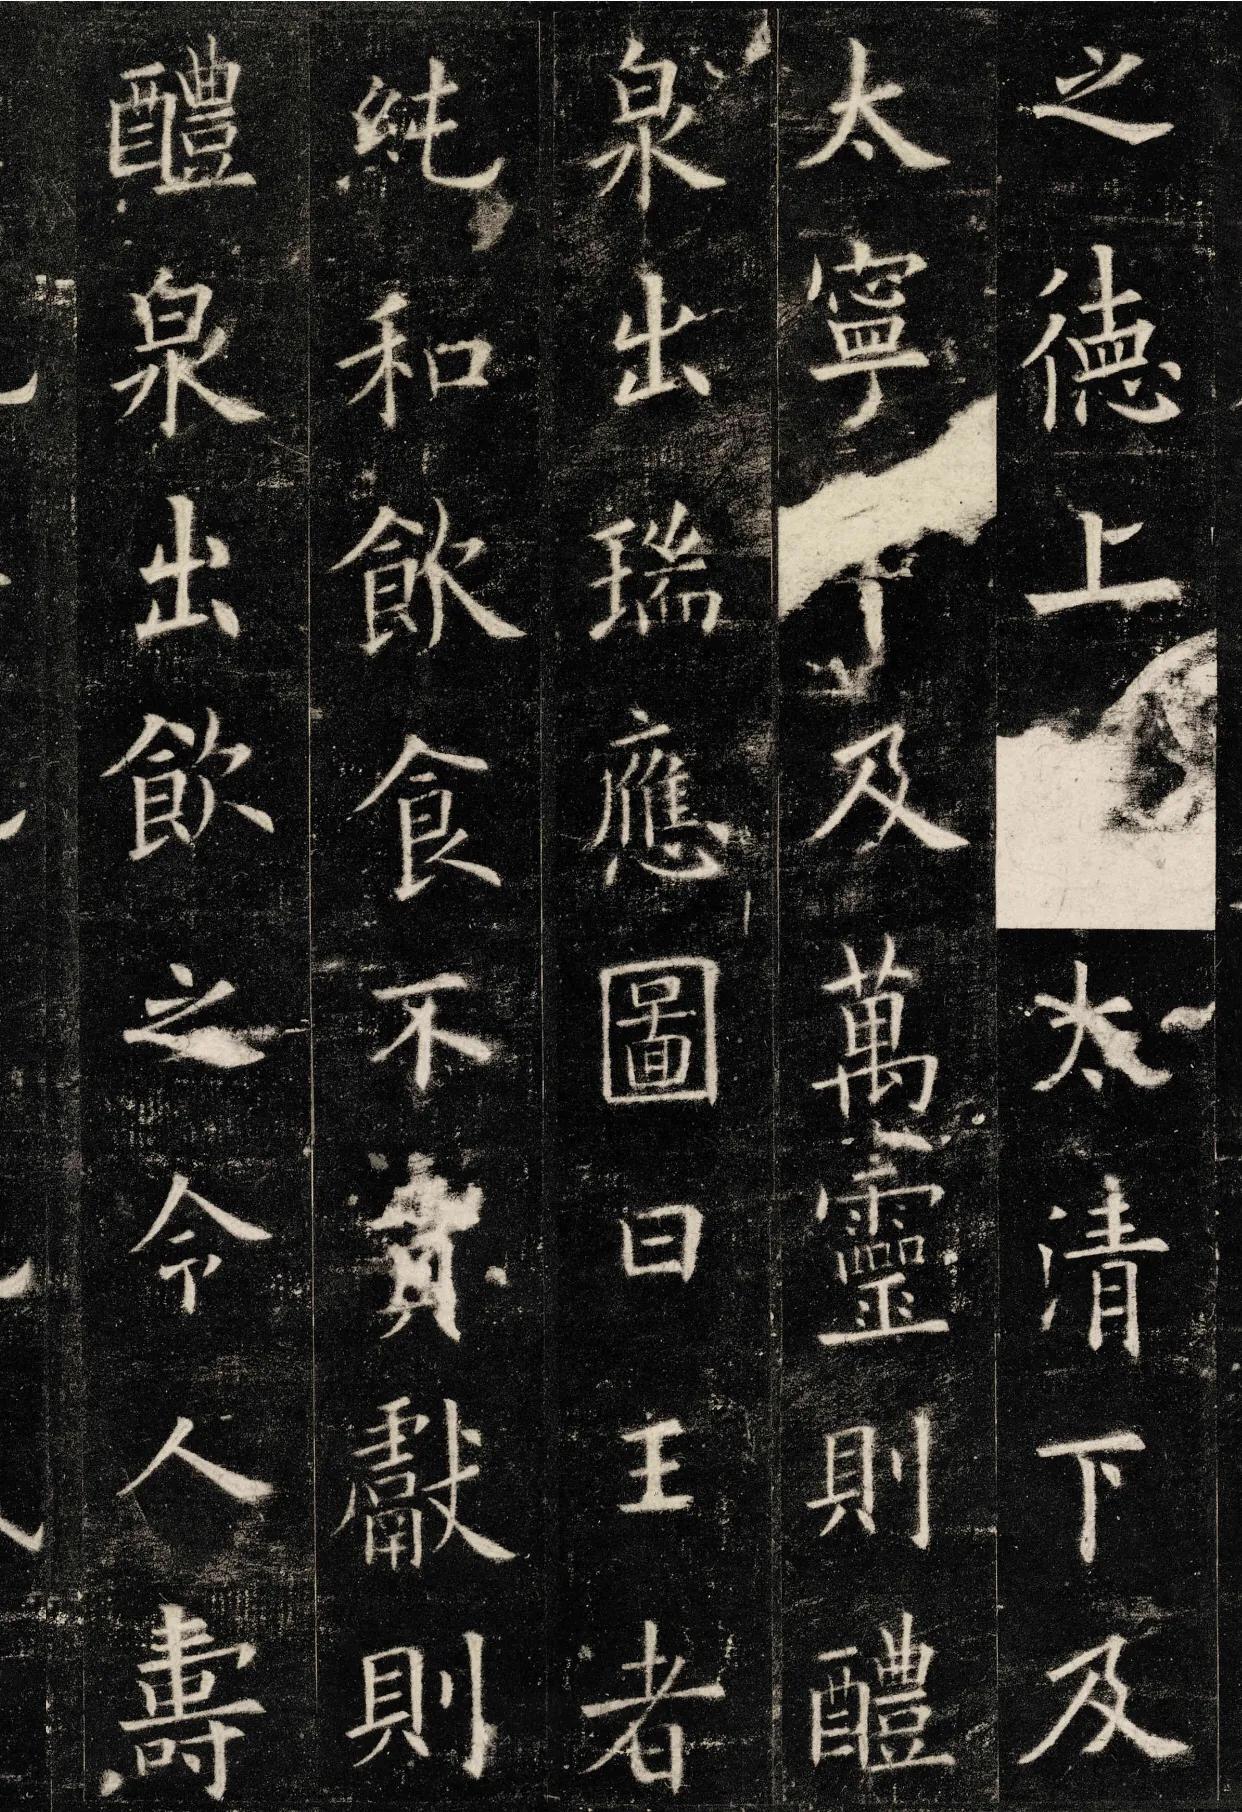 之德上太清下及
太寧及萬靈則醴
泉出瑞應圖曰王者
純和飲食不貢獻則
醴泉出飲之令人壽